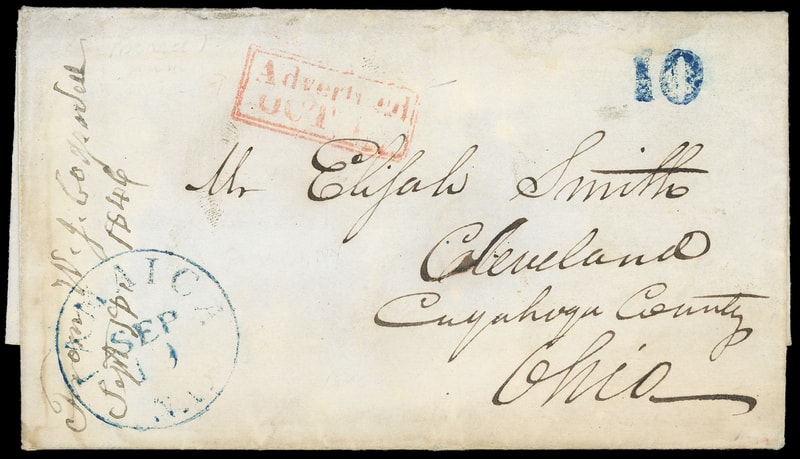 Advertised
OCT
10
Mr Elijah Smith
Cleveland
Cuyahoga County
Ohio
UTICA
SEP
N.Y.
From W. J.
Sept 1846